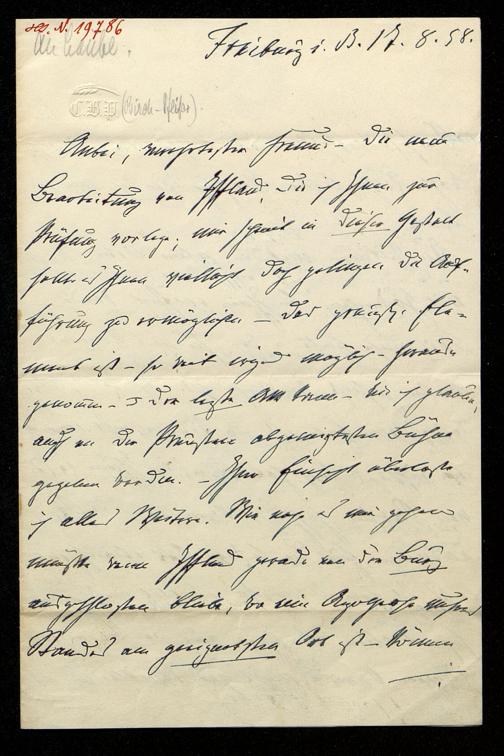 H.I.N. 19786
An Laube.
Freiburg i. B. 17. 8. 58.
C.B.P. (Birch-Pfeiffer).
Anbei, verehrtester Freund – die neue
Bearbeitung von Iffland, die ich Ihnen zur
Prüfung vorlege; mir scheint in dieser Gestalt
sollte es Ihnen vielleicht doch gelingen die Auf-
führung zu ermöglichen – das Ele-
ment ist – so weit irgend möglich – heraus
genommen – der letzte Akt kann – wie ich glaube,
auch an den abgeneigtesten Bühnen
gegeben werden. – Ihrer Einsicht überlasse
ich alles Weitere. Wie nahe es mir gehen
müßte wenn Iffland gerade von der Burg
ausgeschlossen bliebe, wo eine unseres
Standes am geeignetsten Ort ist – können